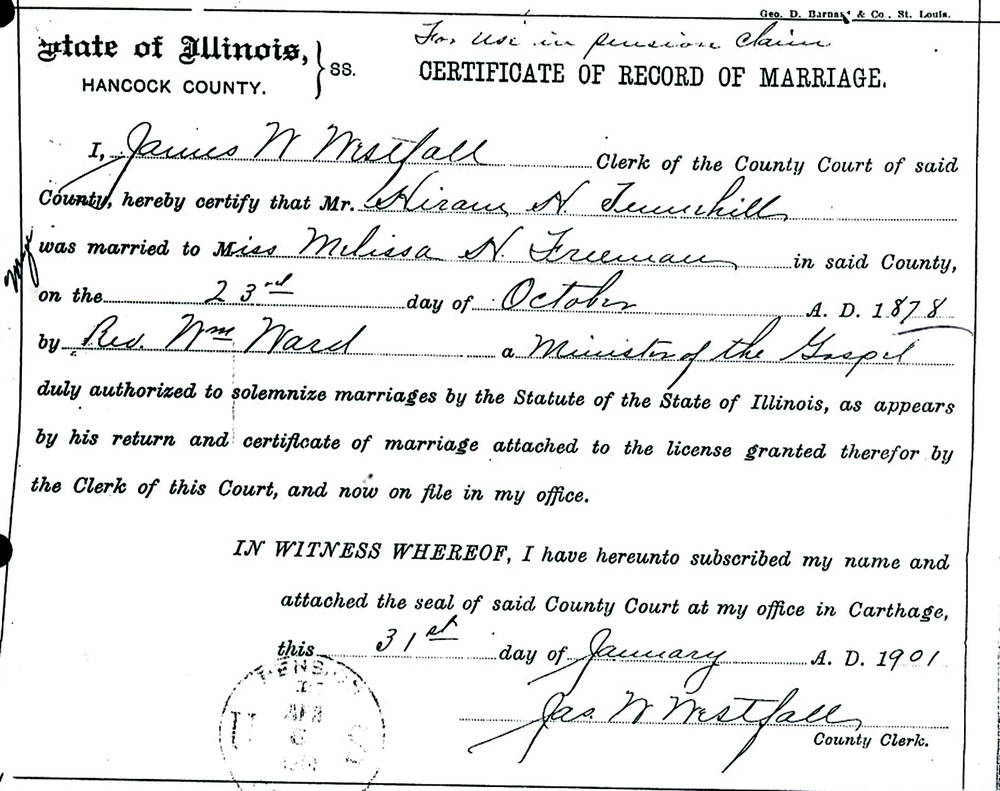 Geo. D. Barnard & Co., St. Louis.
For use in pension claim
State of Illinois, } SS.
HANCOCK COUNTY.
CERTIFICATE OF RECORD OF MARRIAGE.
I, James W Westfall Clerk of the County Court of said
County, hereby certify that Mr. Hiram H. Tunnehill
was married to Miss Melissa N. Freeman in said County,
on the 23rd day of October A. D. 1878
by Rev. Wm Ward a Minister of the Gospel
duly authorized to solemnize marriages by the Statute of the State of Illinois, as appears
by his return and certificate of marriage attached to the license granted therefor by
the Clerk of this Court, and now on file in my office.
IN WITNESS WHEREOF, I have hereunto subscribed my name and
attached the seal of said County Court at my office in Carthage,
this 31st day of January A. D. 1901
Jas. W Westfall
County Clerk.
PENSION
U S